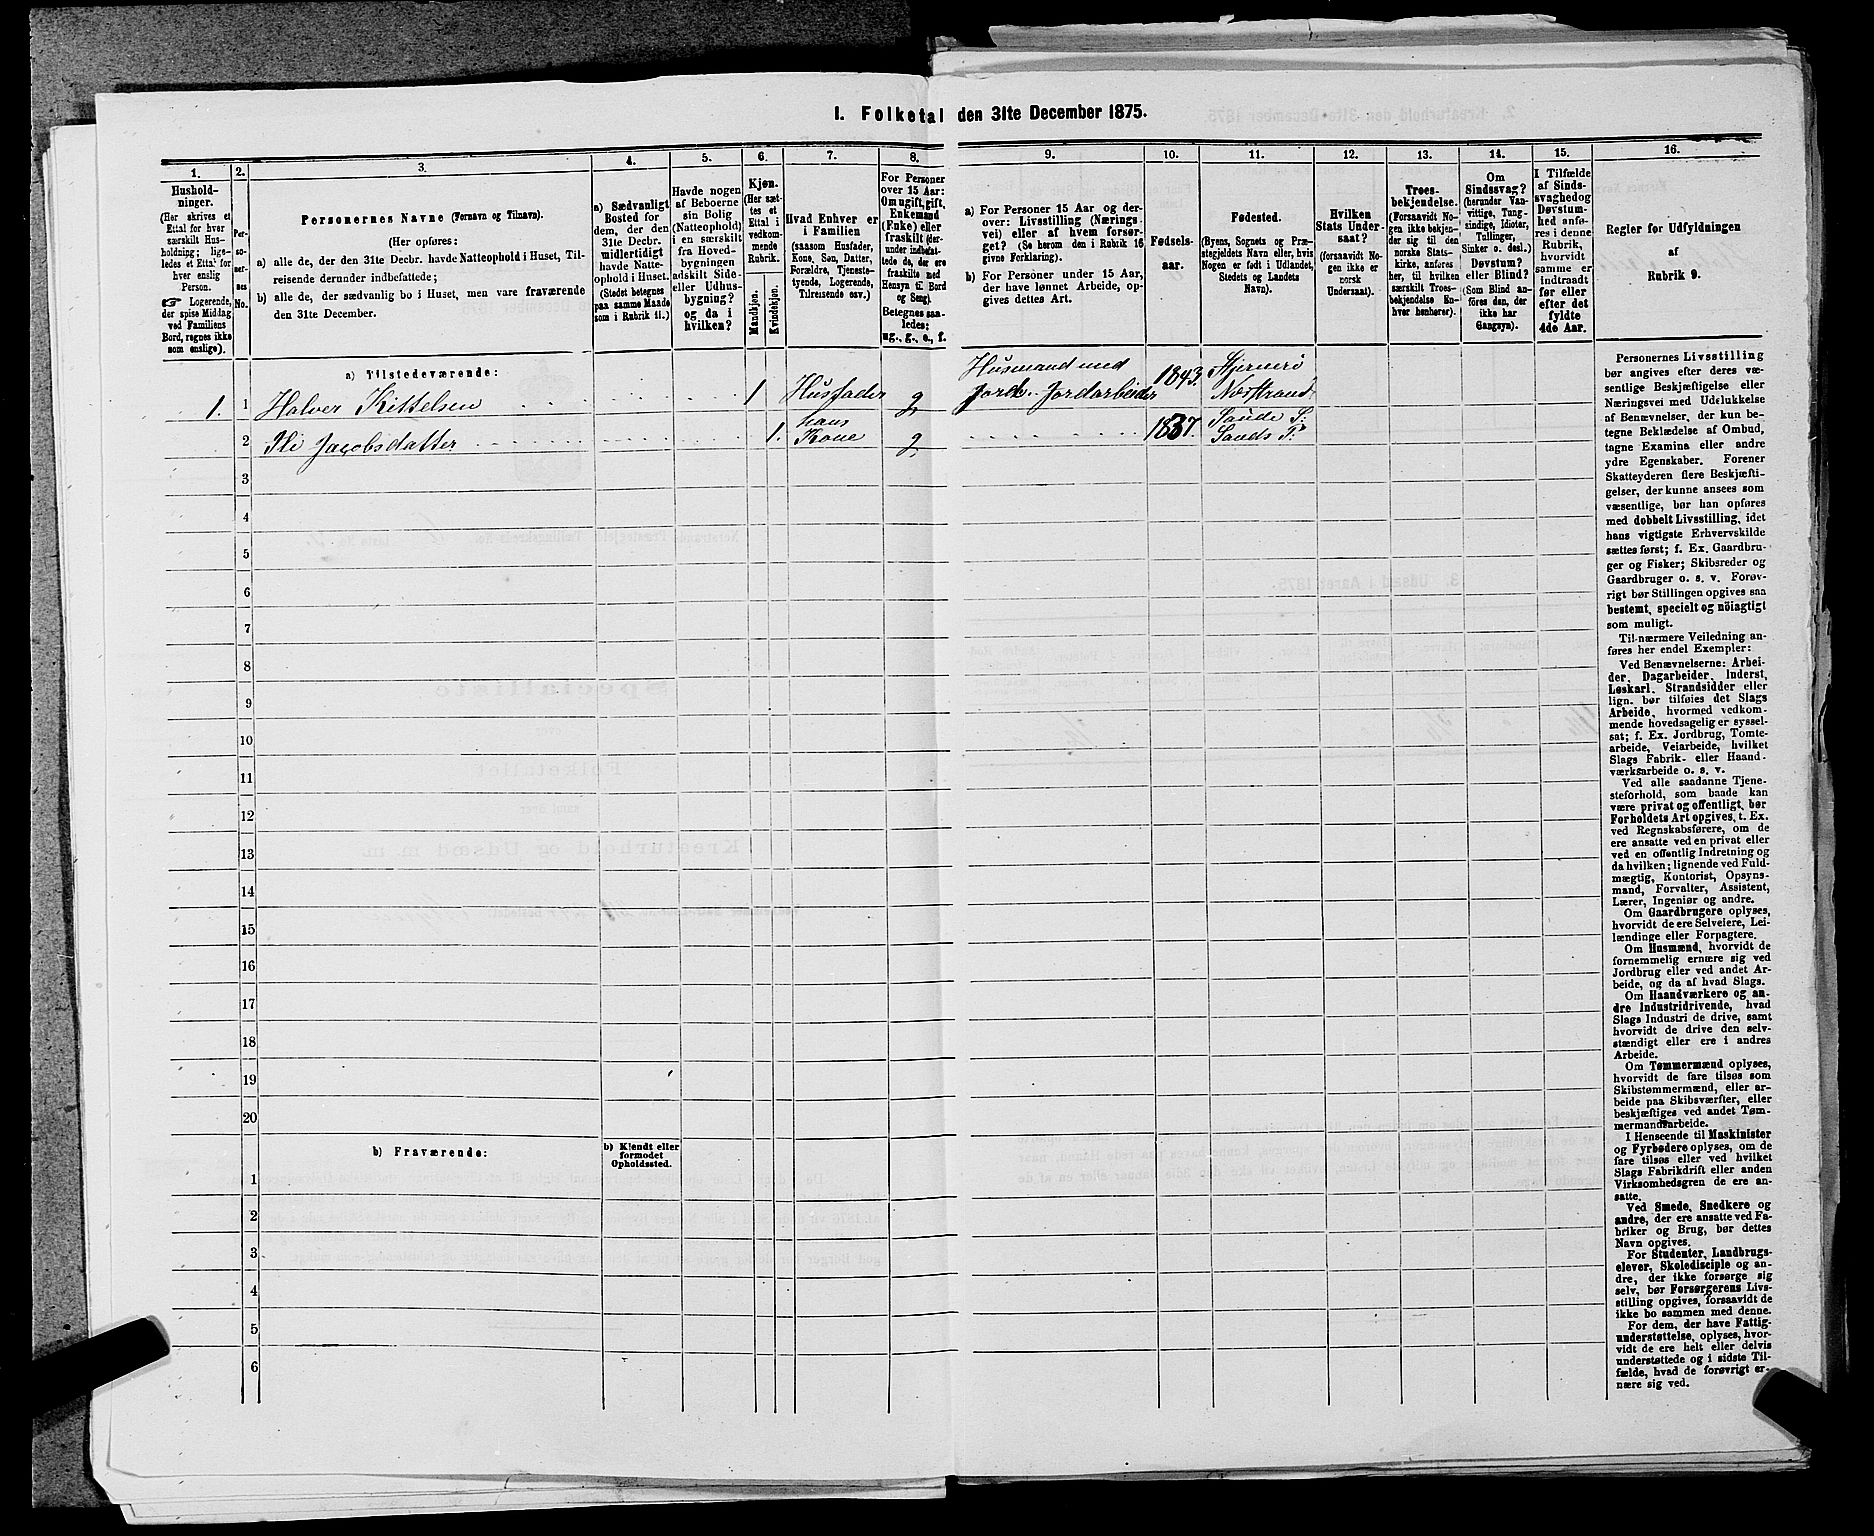 I. Folketal den 31te December 1875.
1.
2.
3.
4.
5.
6.
7.
8.
9.
10.
11.
12.
13.
14.
15.
16.
Hushold-
ninger.
(Her skrives et
Ettal for hver
særskilt Hus-
holdning; lige-
ledes et Ettal for
hver enslig
Person.
☞ Logerende,
der spise Middag
ved Familiens
Bord, regnes ikke
som enslige).
Per-
so-
ner-
nes
No.
Personernes Navne (Fornavn og Tilnavn).
(Her opføres:
a) alle de, der den 31te Decbr. havde Natteophold i Huset, Til-
reisende derunder indbefattede;
b) alle de, der sædvanlig bo i Huset, men vare fraværende
den 31te December.
a) Sædvanligt
Bosted for
dem, der den
31te Decbr.
midlertidigt
havde Natte-
ophold i Huset.
(Stedet betegnes
paa samme Maade
som i Rubrik 11.)
Havde nogen
af Beboerne
sin Bolig
(Natteophold)
i en særskilt
fra Hoved-
bygningen
adskilt Side-
eller Udhus-
bygning?
og da i
hvilken?
Kjøn.
(Her sæt-
tes et
Ettal i
vedkom-
mende
Rubrik.
Mandkjøn.
Kvindekjøn.
Hvad Enhver er
i Familien
(saasom Husfader,
Kone, Søn, Datter,
Forældre, Tjeneste-
tyende, Logerende,
Tilreisende osv.)
For Personer
over 15 Aar:
Om ugift, gift,
Enkemand
(Enke) eller
fraskilt (der-
under indbefat-
tede de, der ere
fraskilte med
Hensyn til Bord
og Seng).
Betegnes saa-
ledes:
ug., g., e., f.
a) For Personer 15 Aar og der-
over: Livsstilling (Nærings-
vei) eller af hvem forsør-
get? (Se herom den i Rubrik 16
givne Forklaring).
b) For Personer under 15 Aar,
der have lønnet Arbeide, op-
gives dettes Art.
Fødsels-
aar.
Fødested.
(Byens, Sognets og Præ-
stegjeldets Navn eller, hvis
Nogen er født i Udlandet,
Stedets og Landets
Navn).
Hvilken
Stats Under-
saat?
(forsaavidt No-
gen ikke er
norsk
Undersaat).
Troes-
bekjendelse.
(Forsaavidt No-
gen ikke bekjen-
der sig til den
norske Stats-
kirke, anføres
her, til hvilken
særskilt Troes-
bekjendelse En-
hver henhører).
Om
Sindssvag?
(herunder Van-
vittige, Tung-
sindige, Idioter,
Tullinger,
Sinker o. desl.)
Døvstum?
eller Blind?
(Som Blind an-
føres den, der
ikke har
Gangsyn).
I Tilfælde
af Sinds-
svaghed og
Døvstum-
hed anfø-
res i denne
Rubrik,
hvorvidt
samme er
indtraadt
før eller
efter det
fyldte
4de Aar.
Regler for Udfyldningen
af
Rubrik 9.
a) Tilstedeværende:
1. 1 Halvor Kittelsen 1 Husfader g Husmand med Jord. Jordarbeider 1843. Hjernerö Nærstrand
2 Ili Jacobsdatter 1. hans Kone g 1837. Saude S: Sauds P:
3
4
5
6
7
8
9
10
11
12
13
14
15
16
17
18
19
20
b) Fraværende:
b) Kjendt eller
formodet
Opholdssted.
1
2
3
4
5
6
Personernes Livsstilling
bør angives efter deres væ-
sentlige Beskjæftigelse eller
Næringsvei med Udelukkelse
af Benævnelser, der kun be-
tegne Beklædelse af Ombud,
tagne Examina eller andre
ydre Egenskaber. Forener
Skatteyderen flere Beskjæfti-
gelser, der kunne ansees som
væsentlige, bør han opføres
med dobbelt Livsstilling, idet
hans vigtigste Erhvervskilde
sættes først; f. Ex. Gaardbru-
ger og Fisker; Skibsreder og
Gaardbruger o. s. v. Forøv-
rigt bør Stillingen opgives saa
bestemt, specielt og nöiagtigt
som muligt.
Til nærmere Veiledning an-
føres her endel Exempler:
Ved Benævnelserne: Arbei-
der, Dagarbeider, Inderst,
Løskarl, Strandsidder eller
lign. bør tilføies det Slags
Arbeide, hvormed vedkom-
mende hovedsagelig er syssel-
sat; f. Ex. Jordbrug, Tomte-
arbeide, Veiarbeide, hvilket
Slags Fabrik- eller Haand-
værksarbeide o. s. v.
Ved alle saadanne Tjene-
steforhold, som baade kan
være privat og offentligt, bør
Forholdets Art opgives, t. Ex.
ved Regnskabsførere, om de
ere ansatte ved en privat eller
ved en offentlig Indretning og
da hvilken; lignende ved Fuld-
mægtig, Kontorist, Opsyns-
mand, Forvalter, Assistent,
Lærer, Ingeniør og andre.
Om Gaardbrugere oplyses,
hvorvidt de ere Selveiere, Lei-
lændinge eller Forpagtere.
Om Husmænd, hvorvidt de
fornemmelig ernære sig ved
Jordbrug eller ved andet Ar-
beide, og da af hvad Slags.
Om Haandværkere og an-
dre Industridrivende, hvad
Slags Industri de drive, samt
hvorvidt de drive den selv-
stændigt eller ere i andres
Arbeide.
Om Tømmermænd oplyses,
hvorvidt de fare tilsøs som
Skibstømmermænd, eller ar-
beide paa Skibsværfter, eller
beskjæftiges ved andet Tøm-
mermandsarbeide.
I Henseende til Maskinister
og Fyrbødere oplyses, om de
fare tilsøs eller ved hvilket
Slags Fabrikdrift eller anden
Virksomhedsgren de ere an-
satte.
Ved Smede, Snedkere og
andre, der ere ansatte ved Fa-
briker og Brug, bør dettes
Navn opgives.
For Studenter, Landbrugs-
elever, Skoledisciple og an-
dre, der ikke forsørge sig
selv, bør Forsørgerens Livs-
stilling opgives, forsaavidt de
ikke bo sammen med denne.
For dem, der have Fattig-
understøttelse, oplyses, hvor-
vidt de ere helt eller delvis
understøttede og i sidste Til-
fælde, hvad de forøvrigt er-
nære sig ved.